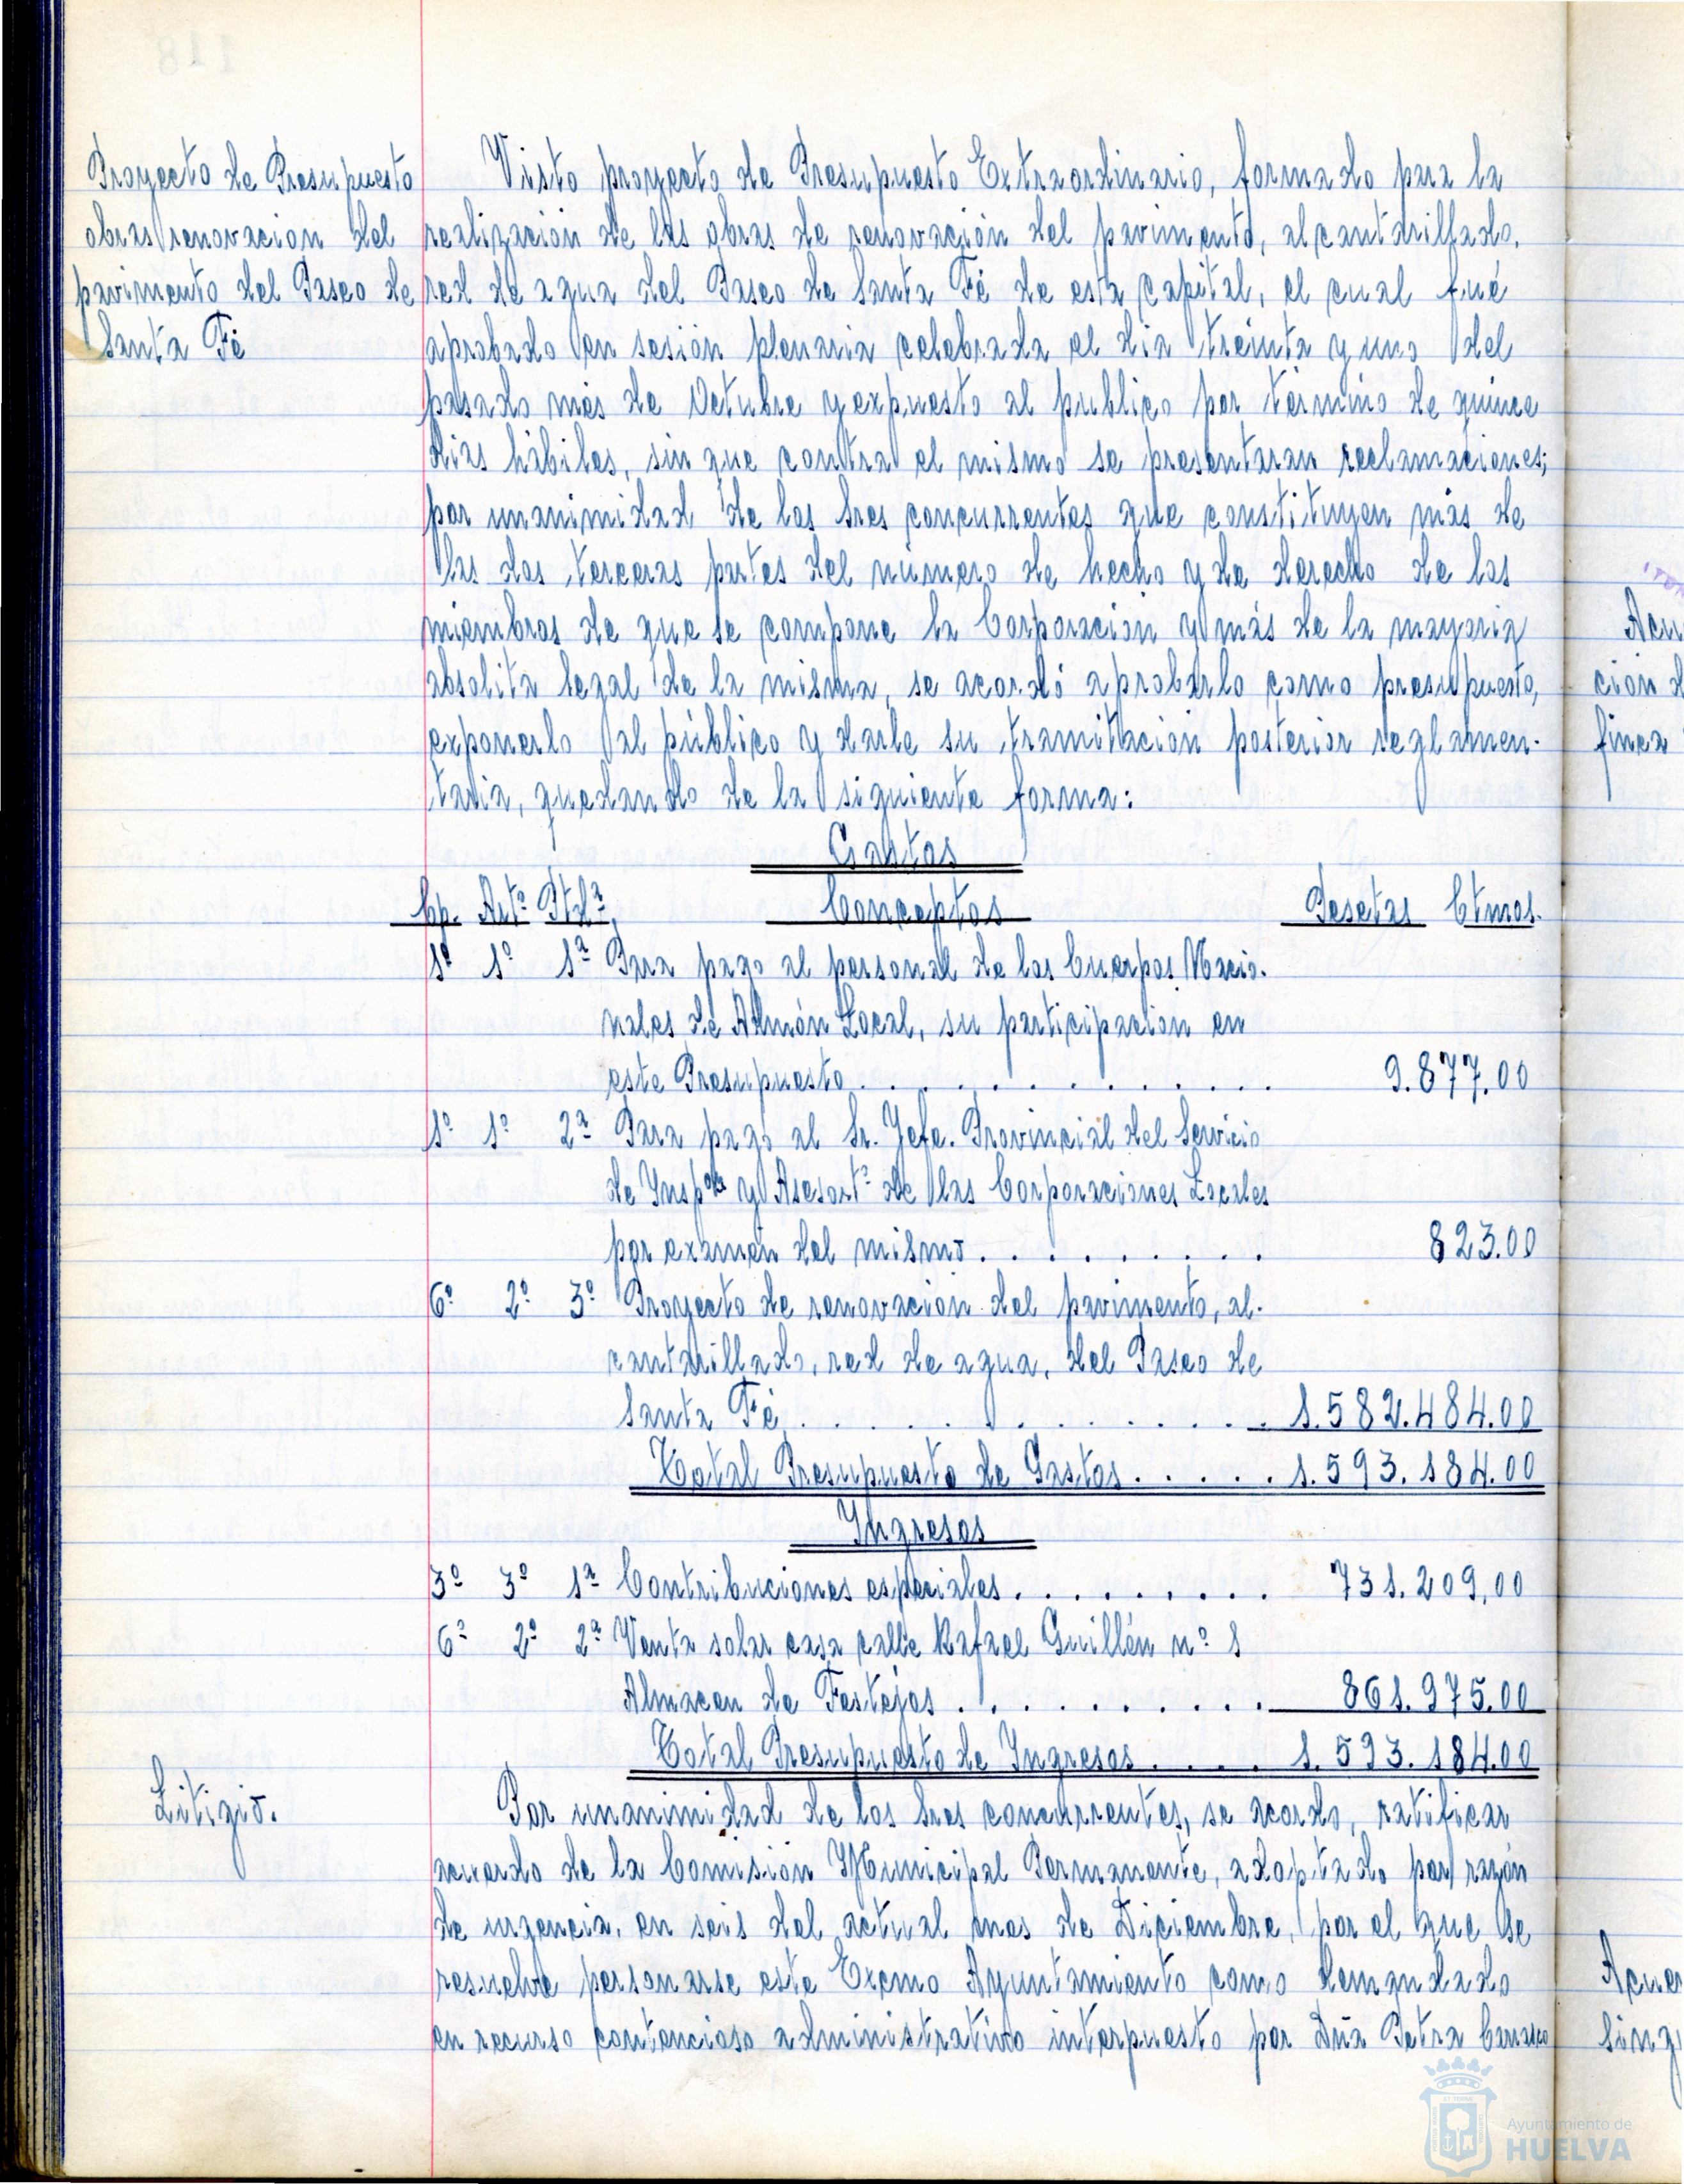 Proyecto de Presupuesto
obras renovacion del
pavimento del Paseo de
Santa Fé
Visto proyecto de Presupuesto Extraordinario, formado para la
realización de las obras de renovación del pavimento, alcantarillado,
red de agua del Paseo de Santa Fé de esta capital, el cual fué
aprobado en sesión plenaria celebrada el dia treinta y uno del
pasado mes de Octubre y expuesto al publico por término de quince
dias hábiles, sin que contra el mismo se presentaran reclamaciones;
por unanimidad de los Sres concurrentes que constituyen más de
las dos terceras partes del número de hecho y de derecho de los
miembros de que se compone la Corporación y más de la mayoria
absolita legal de la misma, se acordó aprobarlo como presupuesto,
exponerlo al público y darle su tramitación posterior reglamen-
taria, quedando de la siguiente forma:
Gastos
Cp. Artº Ptdª Conceptos Pesetas Ctmos.
1º 1º 1ª Para pago al personal de los Cuerpos Nacio-
nales de Admón Local, su participación en
este Presupuesto . . . . . . . . . . . 9.877.00
1º 1º 2ª Para pago al Sr. Jefe. Provincial del Servicio
de Insp y Asesortº de las Corporaciones Locales
por examen del mismo . . . . . . . . . 823.00
6º 2º 3º Proyecto de renovacion del pavimento, al-
cantarillado, red de agua, del Paseo de
Santa Fé . . . . . . . . . . . 1.582.484.00
Total Presupuesto de Gastos . . . . . 1.593.184.00
Ingresos
3º 3º 1ª Contribuciones especiales . . . . . . . . . 731.209,00
6º 2º 2ª Venta solar casa calle Rafael Guillén nº 1
Almacen de Festejos . . . . . . . . . . 861.975.00
Total Presupuesto de Ingresos . . . . 1.593.184.00
Litigio.
Por unanimidad de los Sres concurrentes, se acordo, ratificar
acuerdo de la Comisión Municipal Permanente, adoptado por razón
de urgencia, en seis del actual mes de Diciembre, por el que se
resuelve personarse este Excmo Ayuntamiento como demandado
en recurso contencioso administrativo interpuesto por Dña Petra Carrasco
Acu
cion d
finca
Acuer
Ayuntamiento de
HUELVA